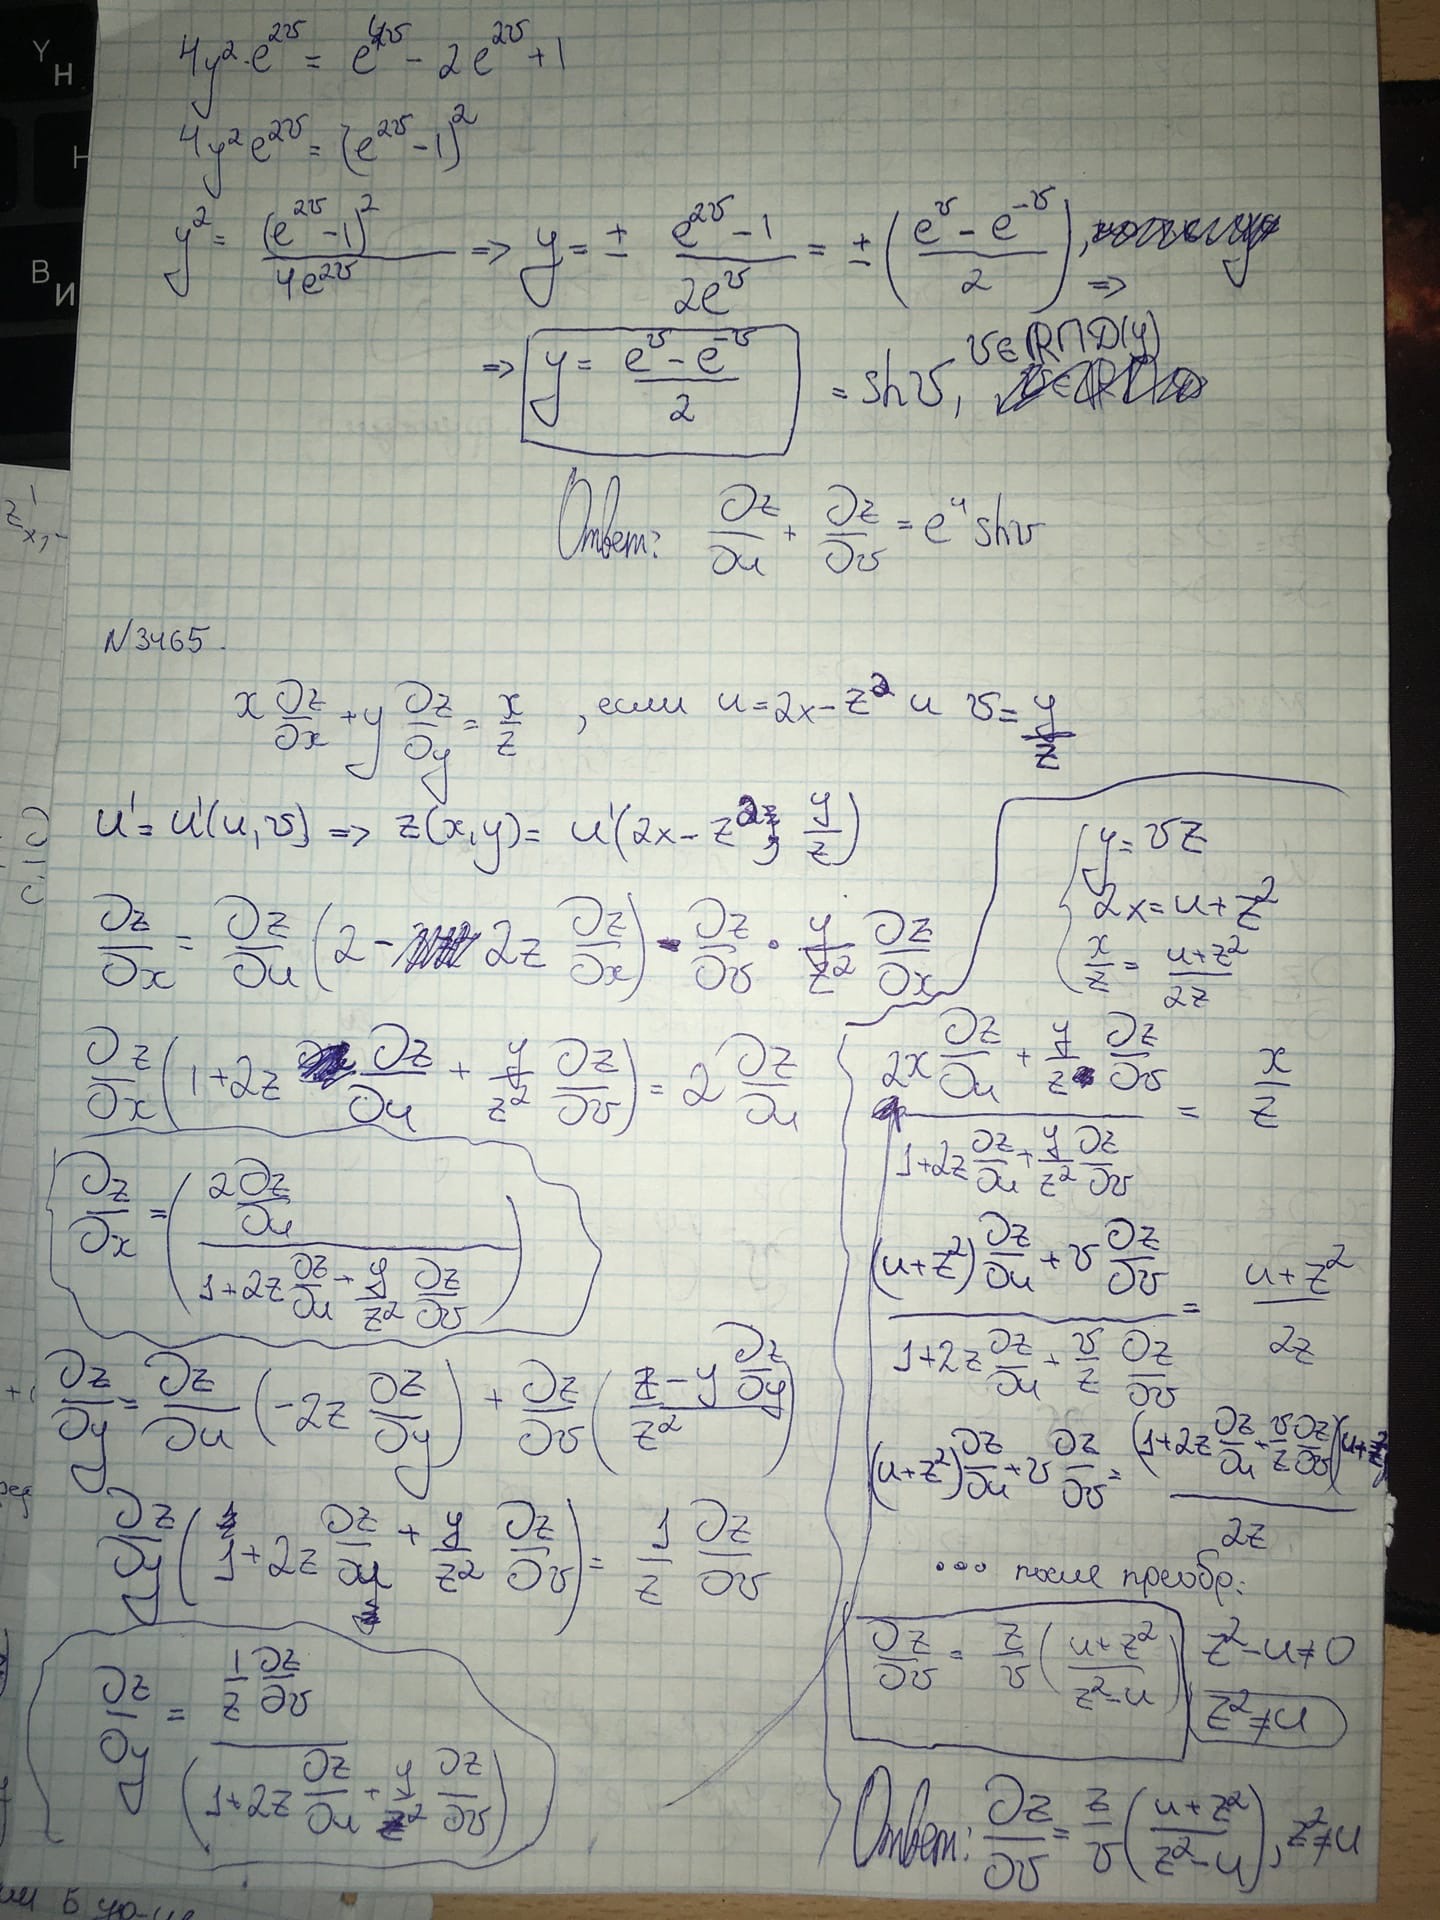 4y²·e^{2v} = e^{4v} - 2e^{2v} + 1
4y²e^{2v} = (e^{2v} - 1)²
y² = (e^{2v} - 1)² / 4e^{2v} => y = ± (e^{2v} - 1) / 2e^v = ± ((e^v - e^{-v}) / 2), =>
=> y = (e^v - e^{-v}) / 2 = sh v, v∈ℝ∩D(y)
Ответ: ∂z/∂u + ∂z/∂v = e^u sh v
N3465.
x ∂z/∂x + y ∂z/∂y = x/z, если u = 2x - z² и v = y/z
u' = u'(u,v) => z(x,y) = u'(2x - z²; y/z)
∂z/∂x = ∂z/∂u (2 - 2z ∂z/∂x) - ∂z/∂v · y/z² ∂z/∂x
∂z/∂x (1 + 2z ∂z/∂u + y/z² ∂z/∂v) = 2 ∂z/∂u
∂z/∂x = (2 ∂z/∂u / (1 + 2z ∂z/∂u + y/z² ∂z/∂v))
∂z/∂y = ∂z/∂u (-2z ∂z/∂y) + ∂z/∂v ((z - y ∂z/∂y) / z²)
∂z/∂y (1 + 2z ∂z/∂u + y/z² ∂z/∂v) = 1/z ∂z/∂v
∂z/∂y = 1/z ∂z/∂v / (1 + 2z ∂z/∂u + y/z² ∂z/∂v)
y = vz
2x = u + z²
x/z = (u + z²) / 2z
(2x ∂z/∂u + y/z ∂z/∂v) / (1 + 2z ∂z/∂u + y/z² ∂z/∂v) = x/z
((u + z²) ∂z/∂u + v ∂z/∂v) / (1 + 2z ∂z/∂u + v/z ∂z/∂v) = (u + z²) / 2z
(u + z²) ∂z/∂u + v ∂z/∂v = (1 + 2z ∂z/∂u + v/z ∂z/∂v)(u + z²) / 2z
... после преобр:
∂z/∂v = z/v ((u + z²) / (z² - u)) z² - u ≠ 0
z² ≠ u
Ответ: ∂z/∂v = z/v ((u + z²) / (z² - u)), z² ≠ u
Y
Н
В
И